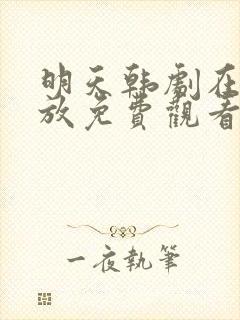 明天韩劇在
放免費觀看
一夜執筆